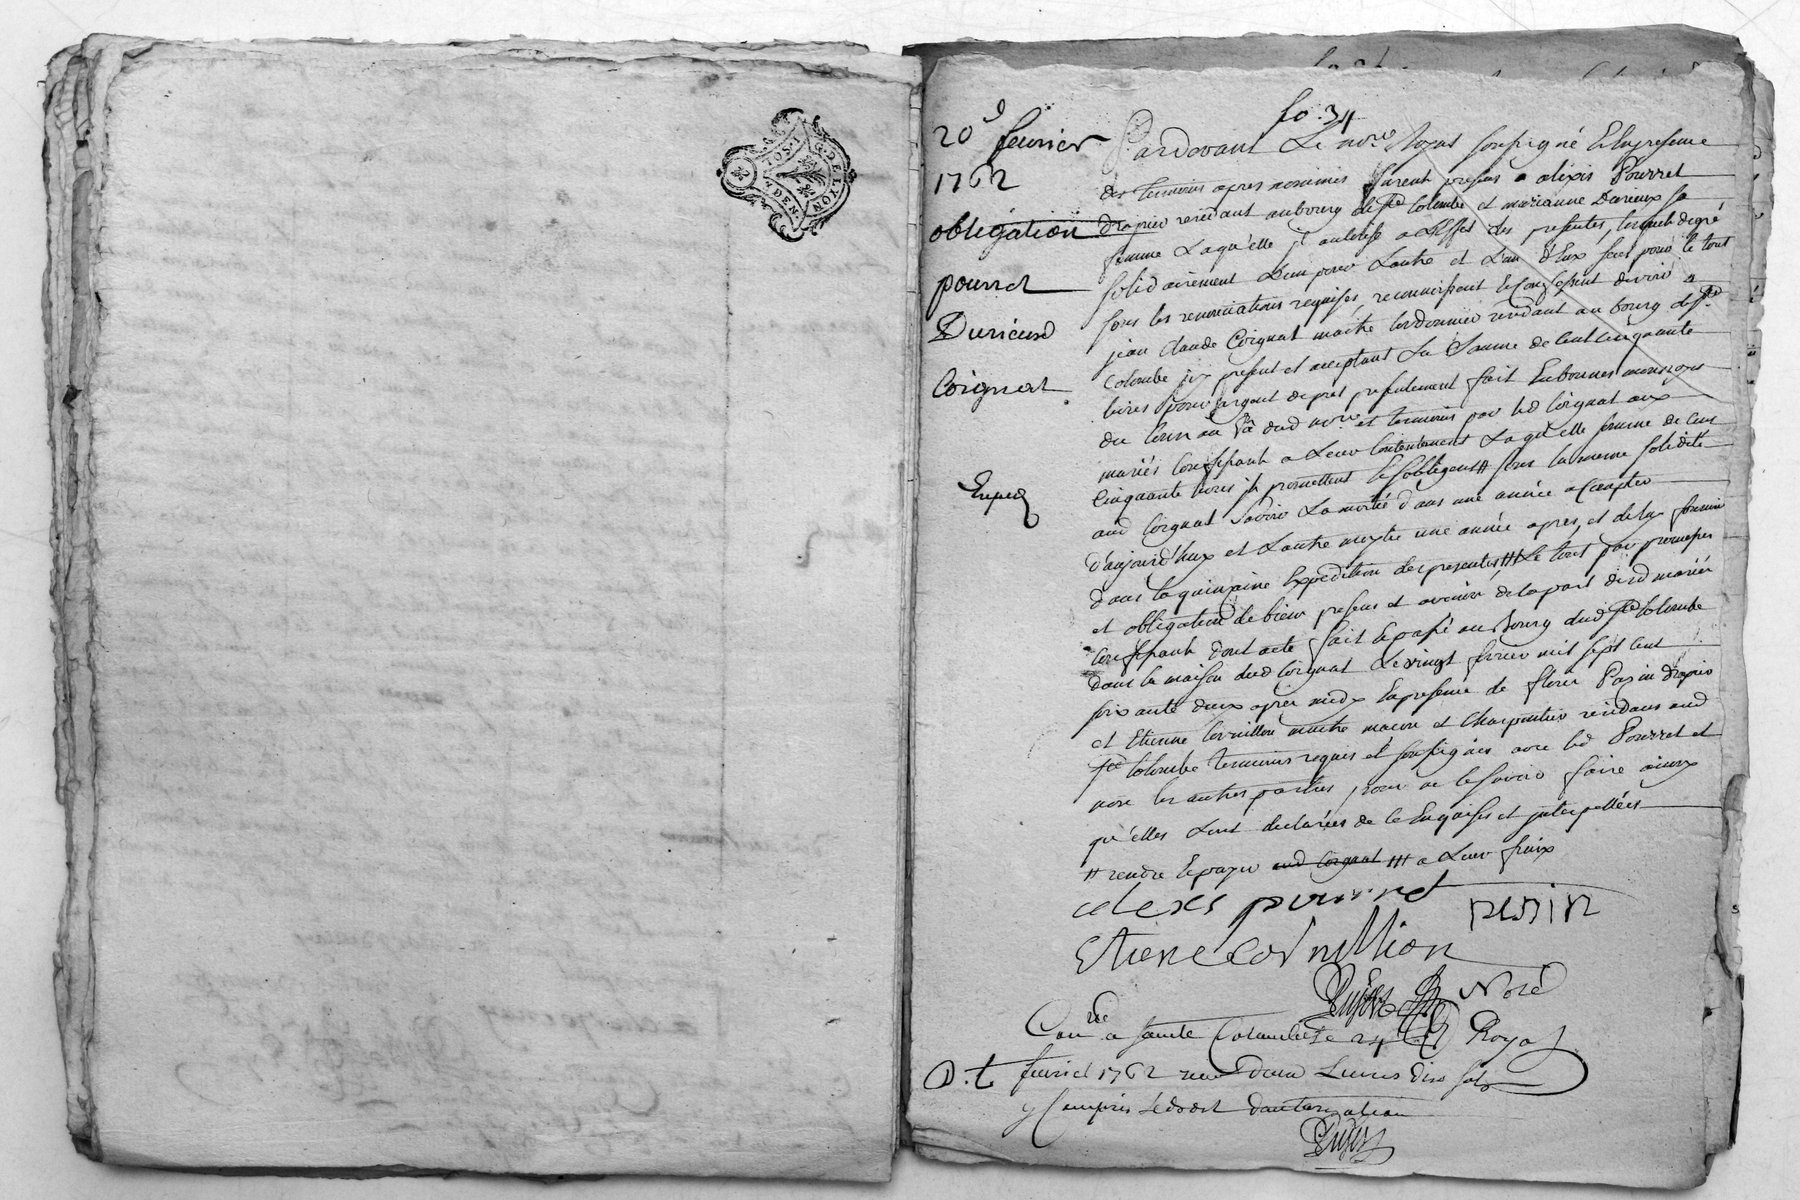 G. DE LYON
2 IOS. I DEN.
fo. 34
20e fevrier
1762
obligation
pourret
Durieux
Coignat
Exped
Pardevant Le nore Royal soussigné Et En presence
des temoins apres nommés furent presens alexis Pourret
drapier residant au bourg de ste Colombe et marianne Durieux sa
femme Laquelle il authorise a L'effet des presentes, lesquels de gré
solidairement L'un pour L'autre et L'un d'Eux seul pour le tout
sous les renonciations requises, reconnoissent Et Confessent devoir a
jean claude Coignat maitre cordonnier residant au bourg de ste
Colombe icy present et acceptant La Somme de Cent Cinquante
livres pour argent de pret presentement fait En bonnes monnoyes
du Cours au vû dud nore et temoins par led Coignat aux
mariés Confessants a Leur Contentement Laquelle somme de Cent
Cinquante livres ils promettent Et s'obligent # sous la meme solidité
aud Coignat savoir La moitié dans une année a Compter
d'aujourd'huy et L'autre moytié une année apres, et de luy fournir
dans la quinzaine Expedition des presentes ### Le tout par promesses
et obligation de biens presens et avenir de la part desd mariés
Confessants dont acte fait Et passé au Bourg dud ste Colombe
dans la maison dud Coignat Le vingt fevrier mil sept cent
soixante deux apres midy En presence de fleury Pasin drapier
et Etienne Cornillon maitre maçon et Charpentier residans aud
ste Colombe temoins requis et soussignés avec led Pourret et
non les autres parties pour ne le savoir faire ainsy
qu'elles L'ont declarées de ce Enquises et interpellées
# rendre Et payer aud Coignat ### a Leur fraix
alexis pourret
Etiene Cornillion
Noré
Royal
Conlle a sainte Colombe Le 24
D.t fevrier 1762 reçu Deux Livres Dix sols
y Compris Le droit D'autorisation